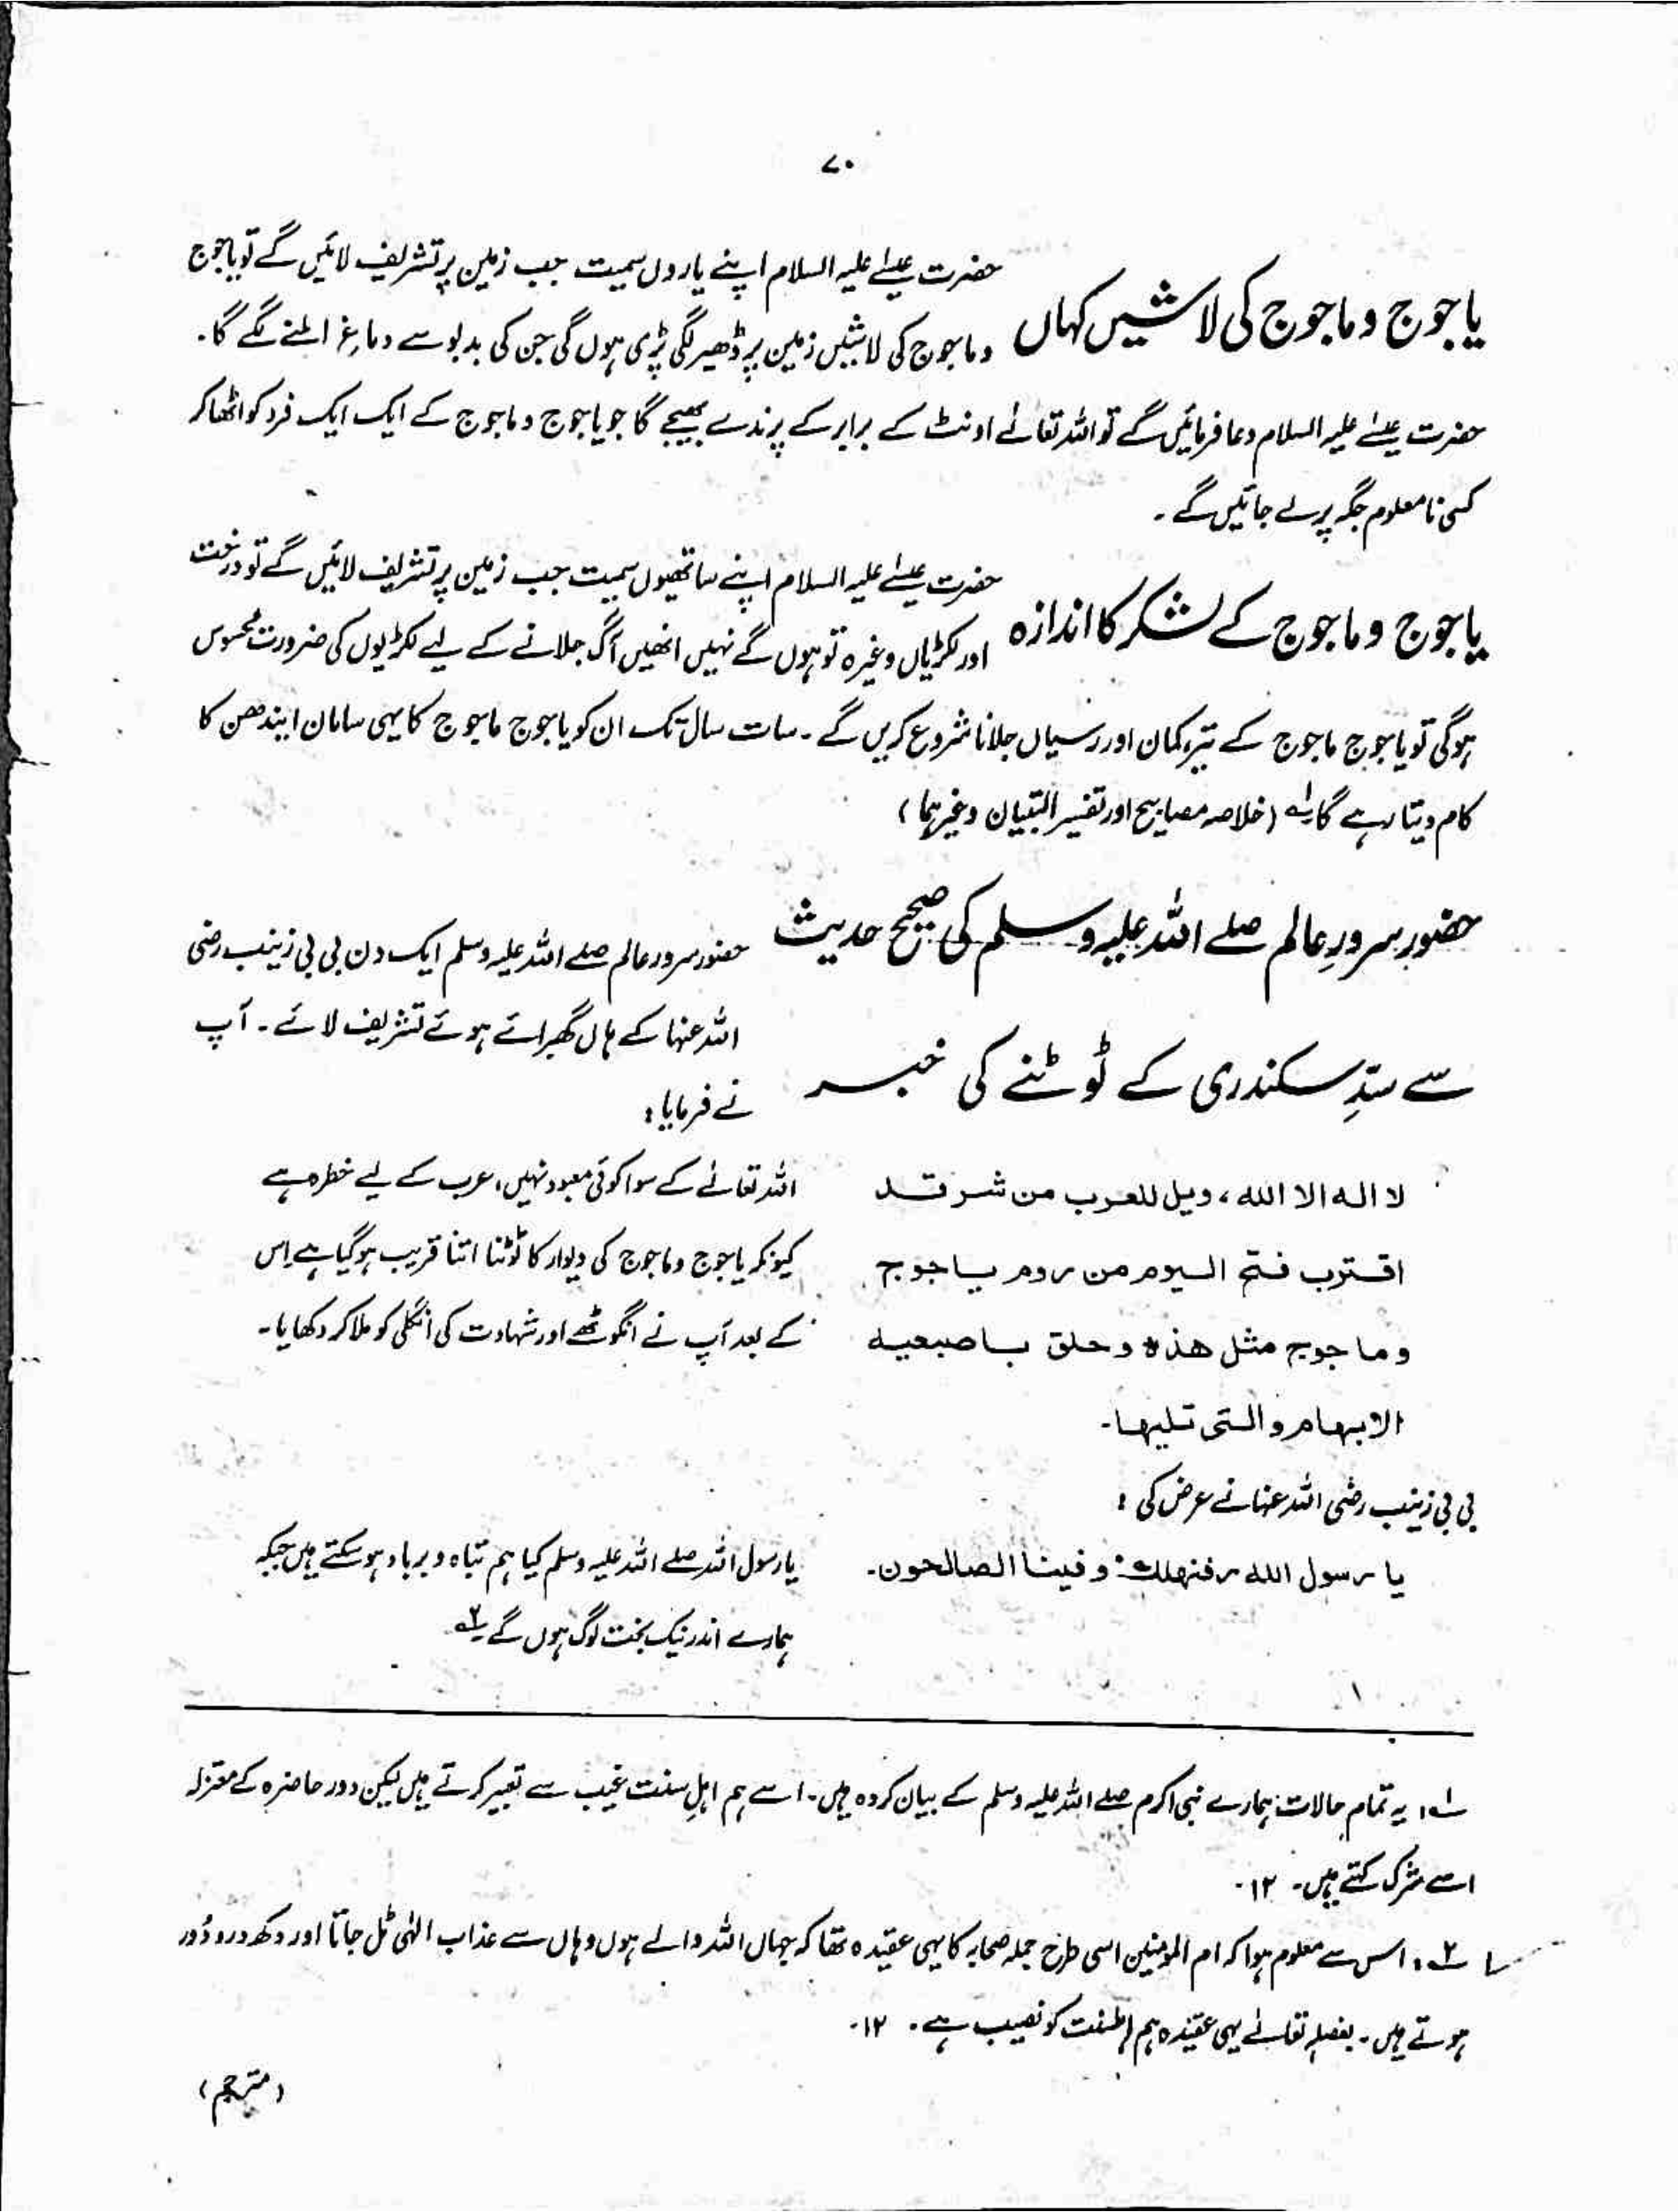 ۷۰
یاجوج وماجوج کی لاشیں کہاں
حضرت عیسٰے علیہ السلام اپنے یاروں سمیت جب زمین پر تشریف لائیں گے تو یاجوج
وماجوج کی لاشیں زمین پر ڈھیر لگی پڑی ہوں گی جن کی بدبو سے دماغ ابلنے لگے گا۔
حضرت عیسٰے علیہ السلام دعا فرمائیں گے تو اللہ تعالےٰ اونٹ کے برابر کے پرندے بھیجے گا جو یاجوج وماجوج کے ایک ایک فرد کو اٹھا کر
کسی نامعلوم جگہ پر لے جائیں گے۔
یاجوج وماجوج کے لشکر کا اندازہ
حضرت عیسٰے علیہ السلام اپنے ساتھیوں سمیت جب زمین پر تشریف لائیں گے تو درخت
اور لکڑیاں وغیرہ تو ہوں گے نہیں انھیں آگ جلانے کے لیے لکڑیوں کی ضرورت محسوس
ہوگی تو یاجوج ماجوج کے تیر، کمان اور رسیاں جلانا شروع کریں گے۔ سات سال تک ان کو یاجوج ماجوج کا یہی سامان ایندھن کا
کام دیتا رہے گا۔ ؎۱ (خلاصہ مصابیح اور تفسیر التبیان وغیرہما)
حضور سرورِ عالم صلے اللہ علیہ وسلم کی صحیح حدیث
سے سدِّ سکندری کے ٹوٹنے کی خبر
حضور سرور عالم صلے اللہ علیہ وسلم ایک دن بی بی زینب رضی
اللہ عنہا کے ہاں گھبرائے ہوئے تشریف لائے۔ آپ
نے فرمایا:
لا الہ الا اللہ، ویل للعرب من شر قد
اقترب فتح الیوم من روم یاجوج
وماجوج مثل ھذہ وحلق باصبعیہ
الابہام والتی تلیہا۔
اللہ تعالےٰ کے سوا کوئی معبود نہیں، عرب کے لیے خطرہ ہے
کیونکہ یاجوج وماجوج کی دیوار کا ٹوٹنا اتنا قریب ہوگیا ہے اس
کے بعد آپ نے انگوٹھے اور شہادت کی انگلی کو ملا کر دکھایا۔
بی بی زینب رضی اللہ عنہا نے عرض کی:
یا رسول اللہ فنہلک وفینا الصالحون۔
یا رسول اللہ صلے اللہ علیہ وسلم کیا ہم تباہ و برباد ہوسکتے ہیں جبکہ
ہمارے اندر نیک بخت لوگ ہوں گے۔ ؎۲
؎۱: یہ تمام حالات ہمارے نبی اکرم صلے اللہ علیہ وسلم کے بیان کردہ ہیں۔ اسے ہم اہلِ سنت غیب سے تعبیر کرتے ہیں لیکن دور حاضرہ کے معتزلہ
اسے شرک کہتے ہیں۔ ۱۲۔
؎۲: اس سے معلوم ہوا کہ ام المومنین اسی طرح جملہ صحابہ کا یہی عقیدہ تھا کہ جہاں اللہ والے ہوں وہاں سے عذاب الٰہی ٹل جاتا اور دکھ درد دُور
ہوتے ہیں۔ بفضلہ تعالےٰ یہی عقیدہ ہم اہلسنت کو نصیب ہے۔ ۱۲۔
(مترجم)